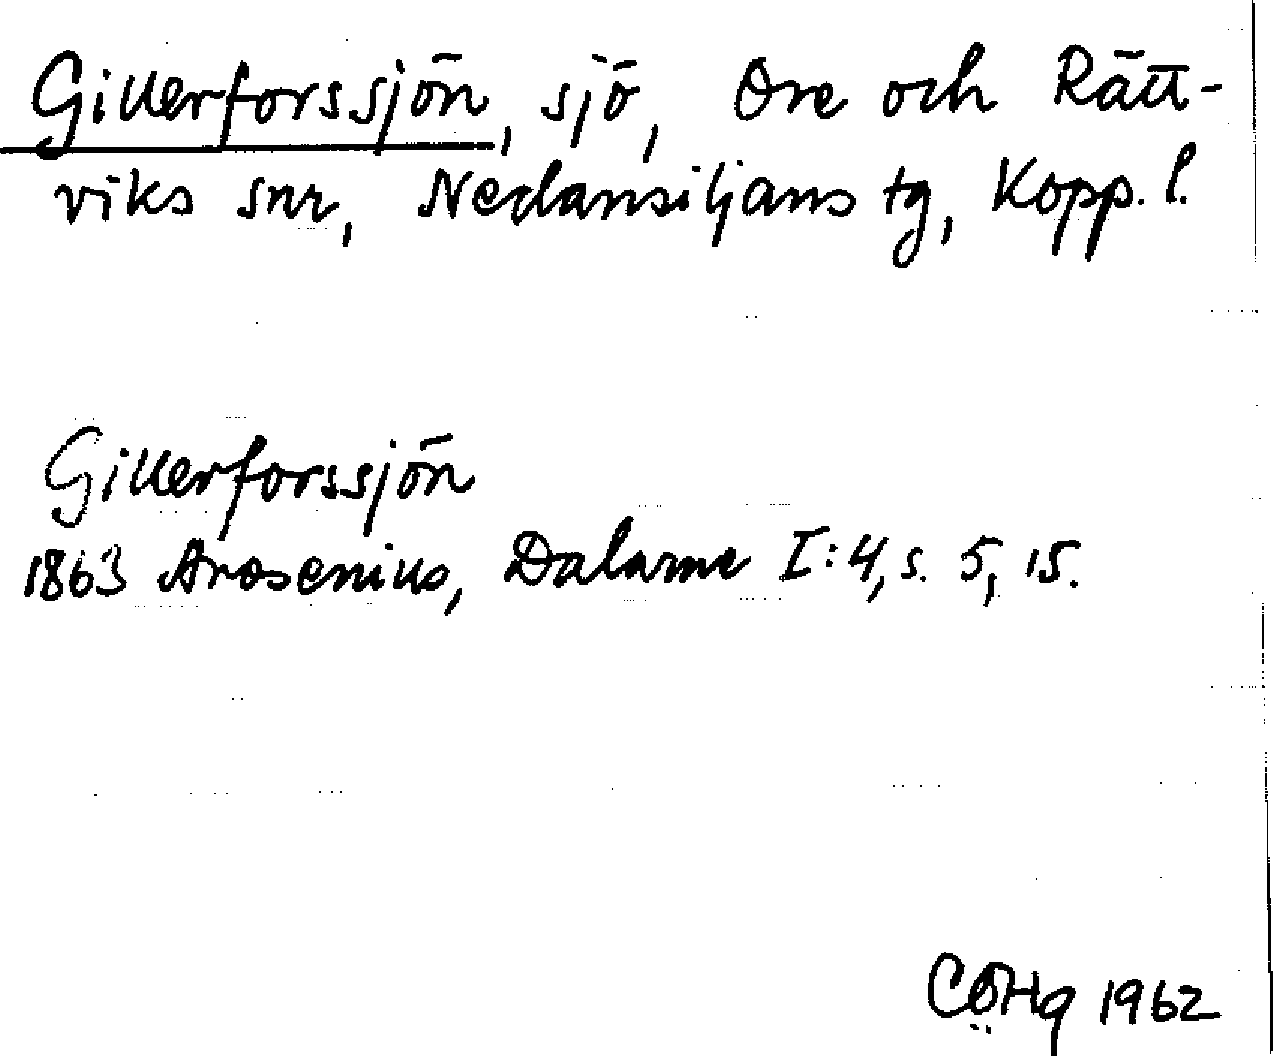 Gillerforssjön, sjö, Ore och Rätt-
viks snr, Nedansiljans tg, Kopp. l.
Gillerforssjön
1863 Arosenius, Dalarne I:4, s. 5, 15.
CÖHq 1962